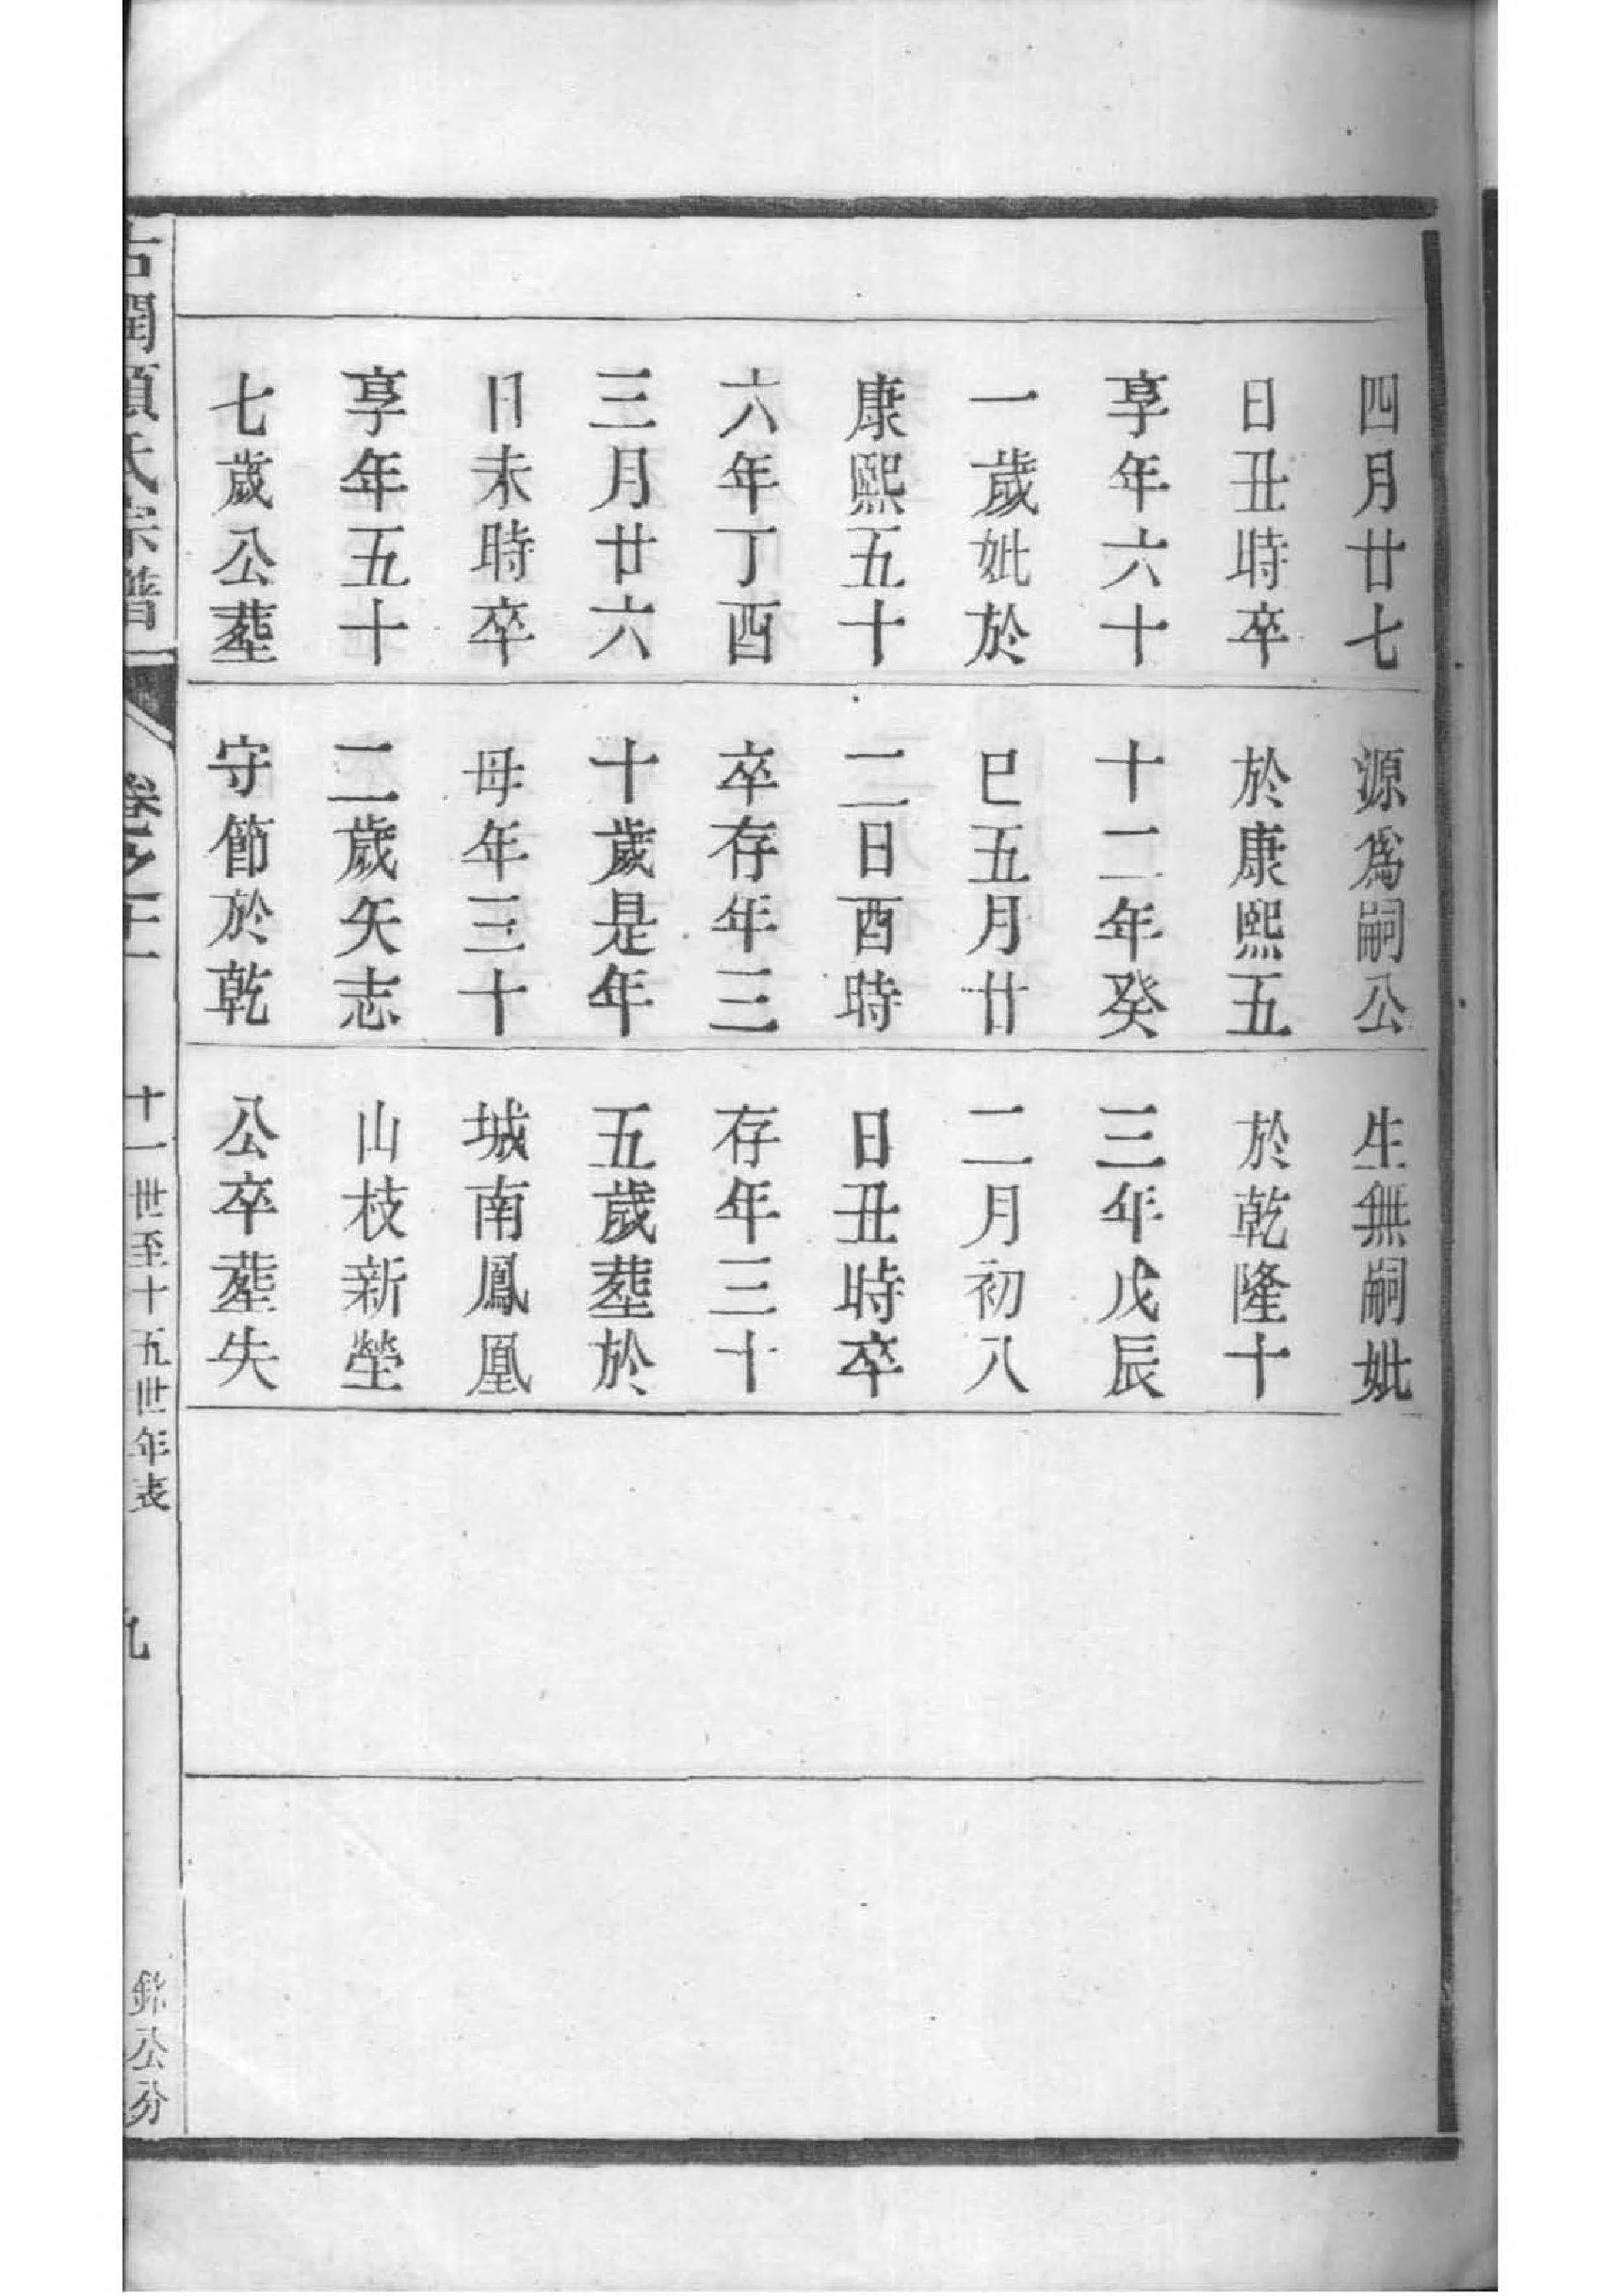 四月廿七
日丑時卒
享年六十
一歲妣於
康熙五十
六年丁酉
三月廿六
日未時卒
享年五十
七歲公塟
源爲嗣公
於康熙五
十二年癸
巳五月廿
二日酉時
卒存年三
十歲是年
母年三十
二歲矢志
守節於乾
生無嗣妣
於乾隆十
三年戊辰
二月初八
日丑時卒
存年三十
五歲塟於
城南鳳凰
山枝新塋
公卒塟失
氏宗譜
卷之十一
十一世至十五世年表
九
公分